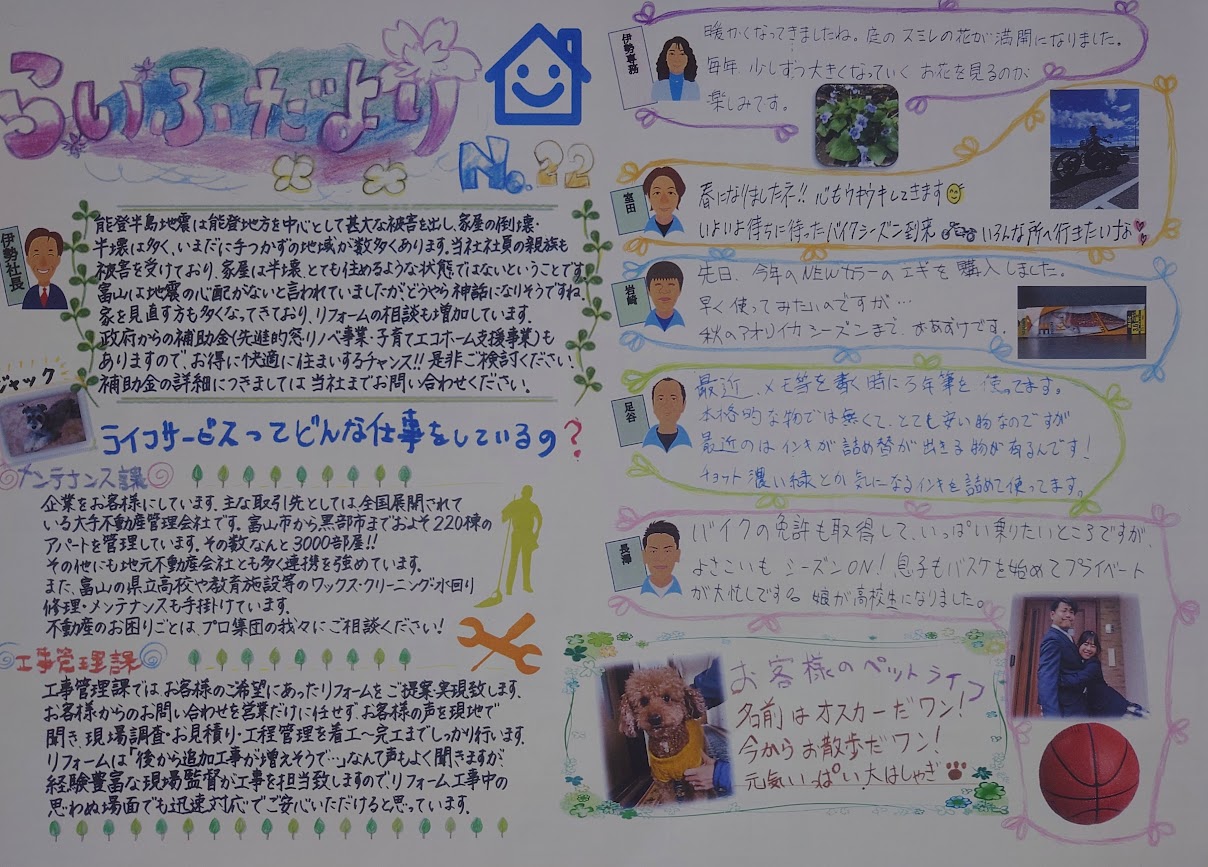 らいふだより
No.22
伊勢社長
能登半島地震は能登地方を中心として甚大な被害を出し、家屋の倒壊・
半壊は多く、いまだに手つかずの地域が数多くあります。当社社員の親族も
被害を受けており、家屋は半壊、とても住めるような状態ではないということです。
富山は地震の心配がないと言われていましたが、どうやら神話になりそうですね。
家を見直す方も多くなってきており、リフォームの相談も増加しています。
政府からの補助金(先進的窓リノベ事業・子育てエコホーム支援事業)も
ありますので、お得に快適に住まいするチャンス!!是非ご検討ください。
補助金の詳細につきましては当社までお問い合わせください。
ジャック
ライフサービスってどんな仕事をしているの?
メンテナンス課
企業をお客様にしています。主な取引先としては全国展開されて
いる大手不動産管理会社です。富山市から黒部市までおよそ220棟の
アパートを管理しています。その数なんと3000部屋!!
その他にも地元不動産会社とも多く連携を強めています。
また、富山の県立高校や教育施設等のワックス・クリーニング・水回り
修理・メンテナンスも手掛けています。
不動産のお困りごとは、プロ集団の我々にご相談ください!
工事管理課
工事管理課ではお客様のご希望にあったリフォームをご提案・実現致します。
お客様からのお問い合わせを営業だけに任せず、お客様の声を現地で
聞き、現場調査・お見積り・工程管理を着工〜完工までしっかり行います。
リフォームは「後から追加工事が増えそうで…」なんて声もよく聞きますが、
経験豊富な現場監督が工事を担当致しますので、リフォーム工事中の
思わぬ場面でも迅速対応でご安心いただけると思っています。
伊勢専務
暖かくなってきましたね。庭のスミレの花が満開になりました。
毎年、少しずつ大きくなっていくお花を見るのが
楽しみです。
室田
春になりましたネ!!心もウキウキしてきます
いよいよ待ちに待ったバイクシーズン到来 いろんな所へ行きたいけど
岩崎
先日、今年のNEWカラーのエギを購入しました。
早く使ってみたいのですが…
秋のアオリイカシーズンまで、おあずけです。
足谷
最近、メモ等を書く時に万年筆を使ってます。
本格的な物では無くて、とても安い物なのですが
最近のはインキが詰め替が出きる物が有るんです!
チョット濃い緑とか気になるインキを詰めて使ってます。
長澤
バイクの免許も取得して、いっぱい乗りたいところですが、
よさこいもシーズンON!息子もバスケを始めてプライベート
が大忙しです。娘が高校生になりました。
お客様のペットライフ
名前はオスカーだワン!
今からお散歩だワン!
元気いっぱい大はしゃぎ